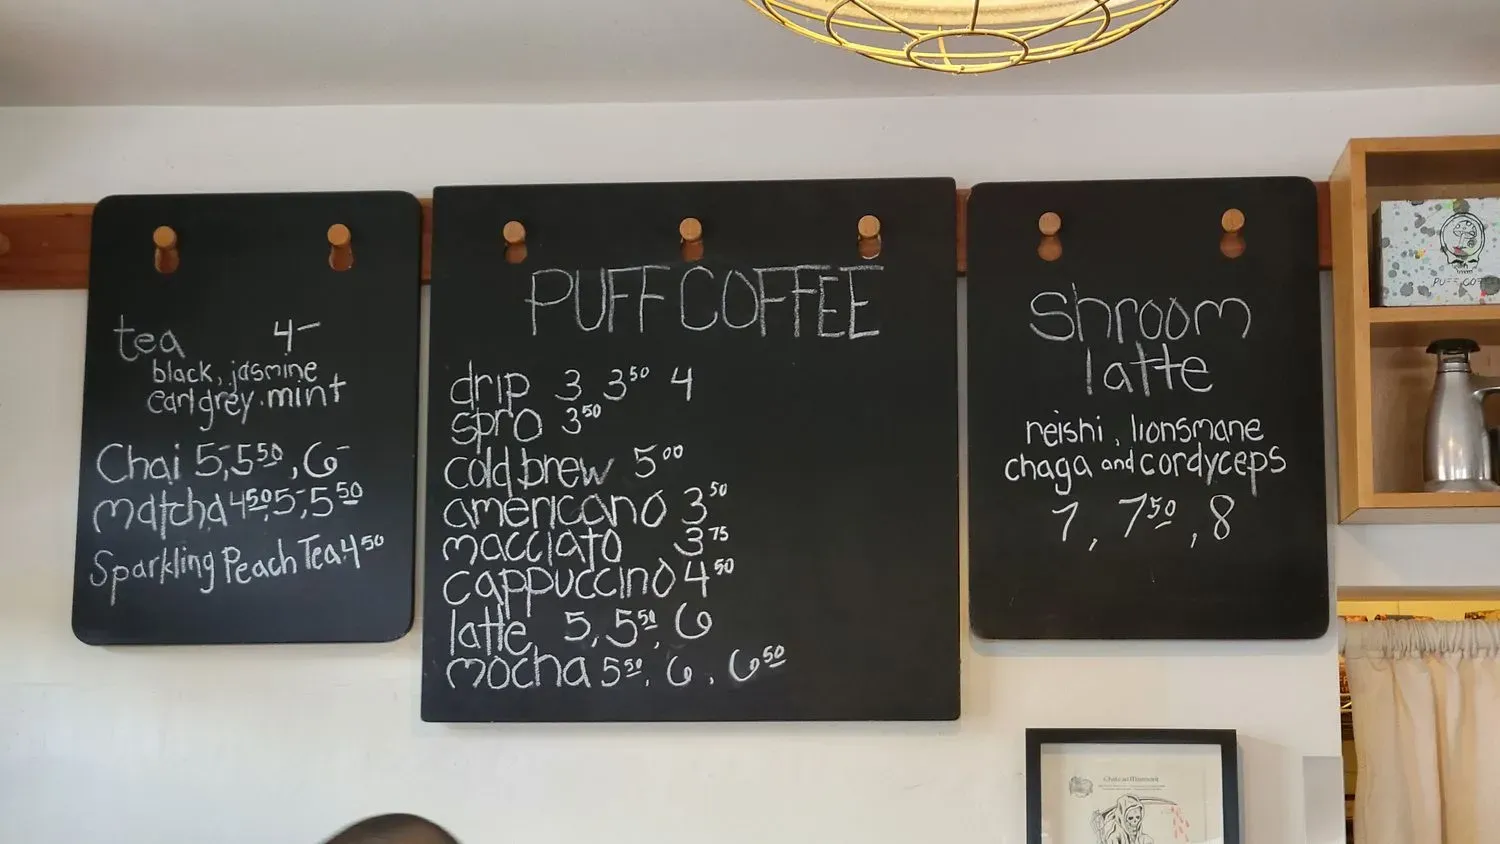 tea 4-
black, jasmine
earl grey. mint
Chai 5-, 5⁵⁰, 6-
matcha 4⁵⁰, 5-, 5⁵⁰
Sparkling Peach Tea 4⁵⁰
PUFF COFFEE
drip 3 3⁵⁰ 4
spro 3⁵⁰
cold brew 5⁰⁰
americano 3⁵⁰
macciato 3⁷⁵
cappuccino 4⁵⁰
latte 5, 5⁵⁰, 6
mocha 5⁵⁰, 6, 6⁵⁰
Shroom
latte
reishi, lionsmane
chaga and cordyceps
7, 7⁵⁰, 8
PUFF CO